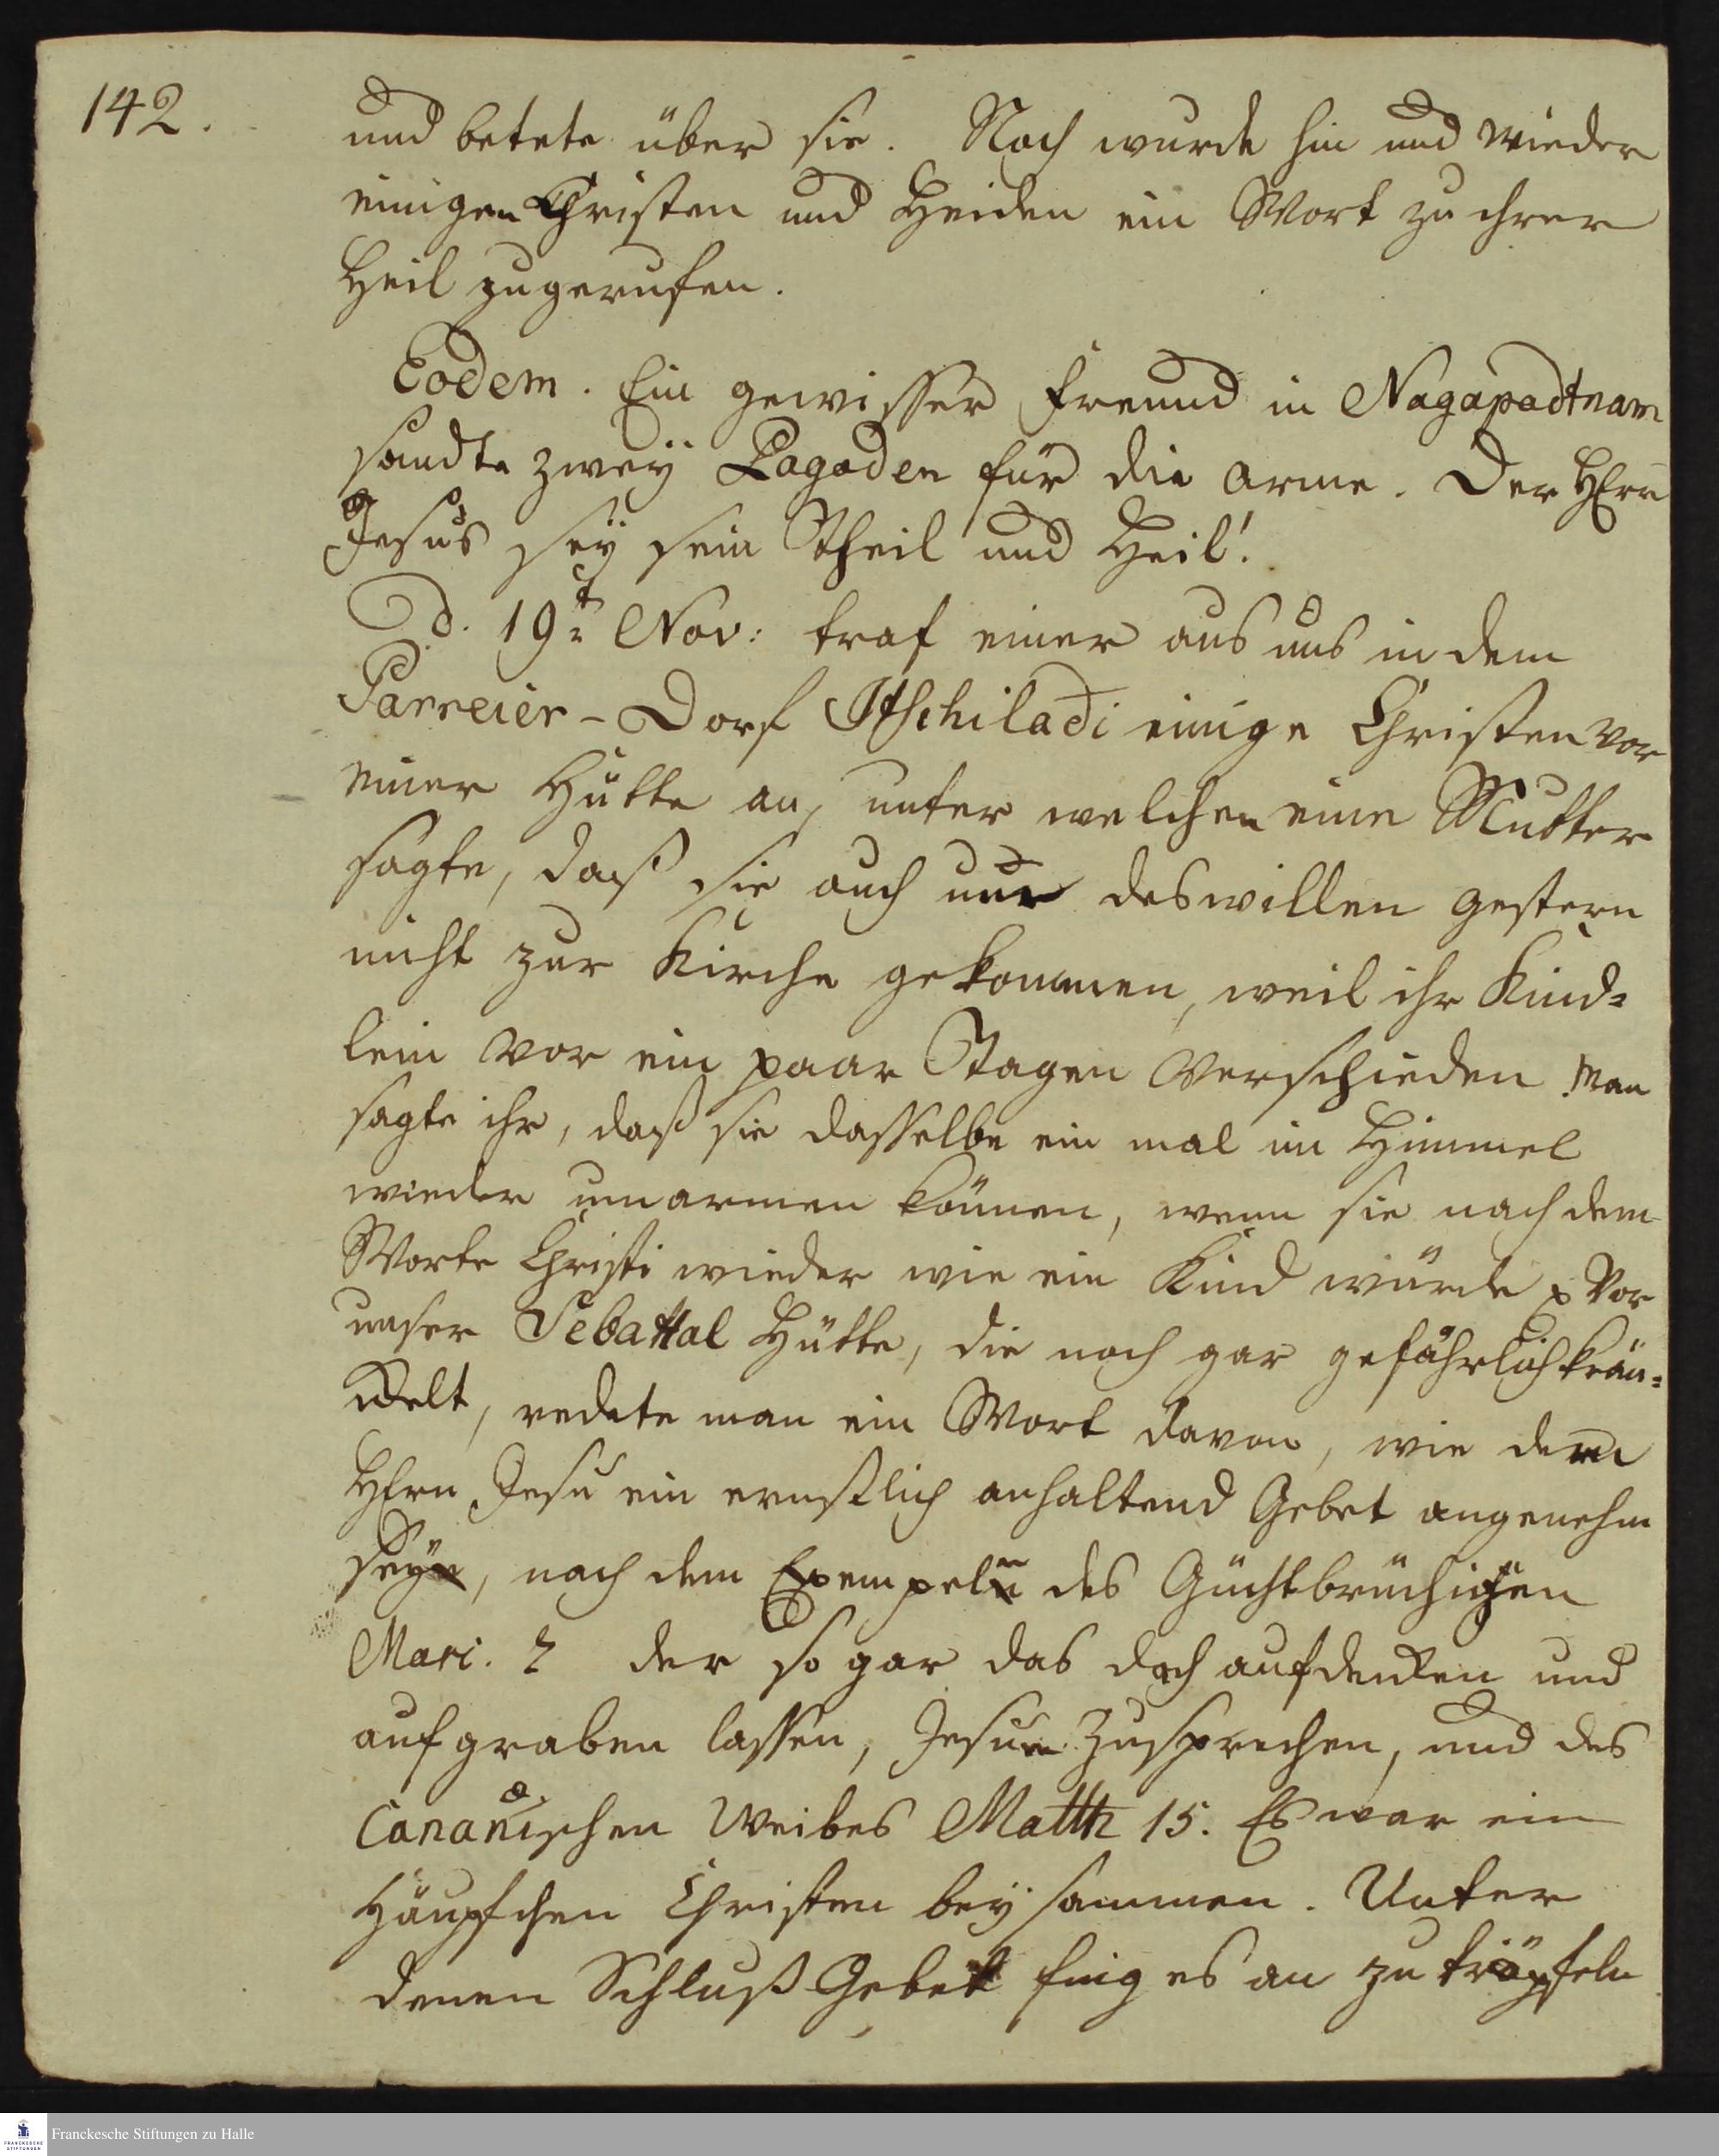 142.
und betete über sie. Noch wurde hin und wieder
einigen Christen und Heiden ein Wort zu ihrer
Heil zugerufen.
Eodem. Ein gewisser Freund in Nagapadtnam
sandte zwey Pagoden für die Arme. Der HErr
Jesus sey sein Theil und Heil!
d. 19t Nov: traf einer aus uns in dem
Parreier-Dorf Itschiladi einige Christen vor
einer Hütte an, unter welchen eine Mutter
sagte, daß sie auch nur deswillen gestern
nicht zur Kirche gekommen, weil ihr Kind=
lein vor ein paar Tagen verschieden. Man
sagte ihr, daß sie dasselbe ein mal im Himmel
wieder umarmen könne, wenn sie nach dem
Worte Christi wieder wie ein Kind würde Vor
unser Sebattal Hütte, die noch gar gefährlich krän=
kelt, redete man ein Wort davon, wie dem
HErrn Jesu ein ernstlich anhaltend Gebet angenehm
sey, nach dem Exempel des Gichtbrüchigen
Marc. 2 der so gar das dach aufdecken und
aufgraben lassen, Jesum zusprechen, und des
Cananäischen Weibes Matth 15. Es war ein
Häupfchen Christen beysammen. Unter
denen Schluß Gebet fing es an zu tröpfeln
Franckesche Stiftungen zu Halle